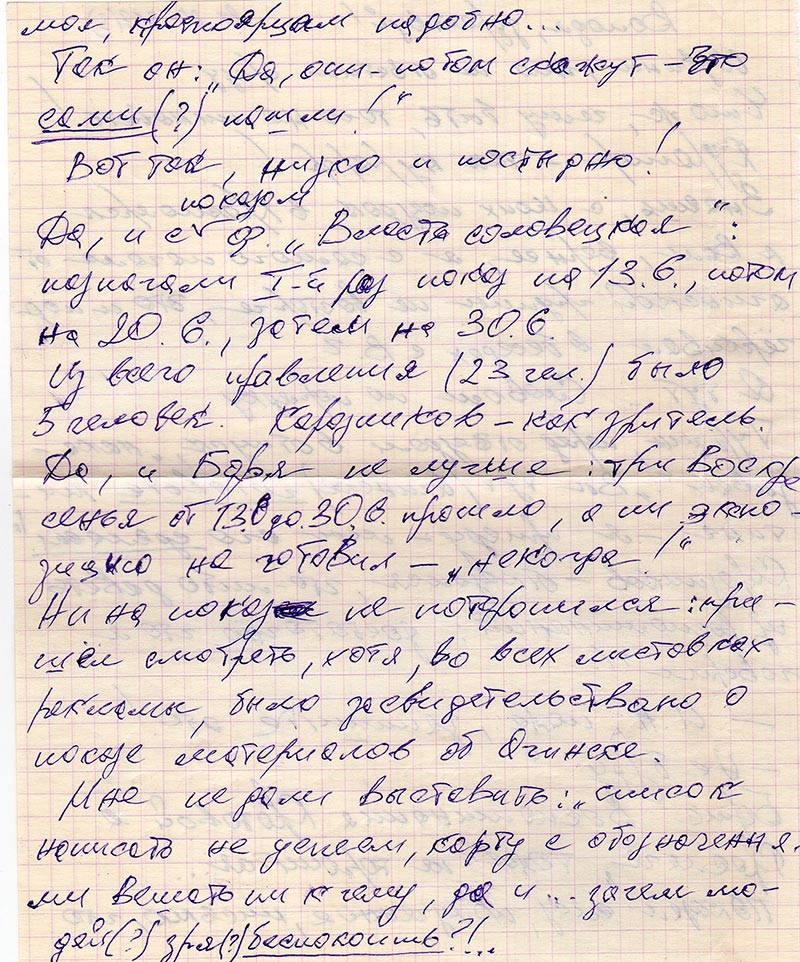 моя, красноярцам надобно...
Так он: „Да, они - потом скажут - это
сами (?) нашли!“
Вот так, низко и постыдно!
показом
Да, и с ф. „Власть соловецкая“:
назначали I-й раз показ на 13.6., потом
на 20.6., затем на 30.6.
Из всего правления (23 чел.) было
5 человек. - как зритель.
Да, и Боря не лучше: три Воскре
сенья от 13.6 до 30.6. прошло, а ни экспо-
зицию не готовил - „некогда!“
Ни на показ не поторопился: при-
шёл смотреть, хотя, во всех листовках
рекламы, было засвидетельствовано о
показе материалов об Ачинске.
Мне не дали выставить: „список
написать не успеем, карту с обозначения-
ми вешать ни к чему, да и... зачем лю-
дей (?) зря (?) беспокоить?!..